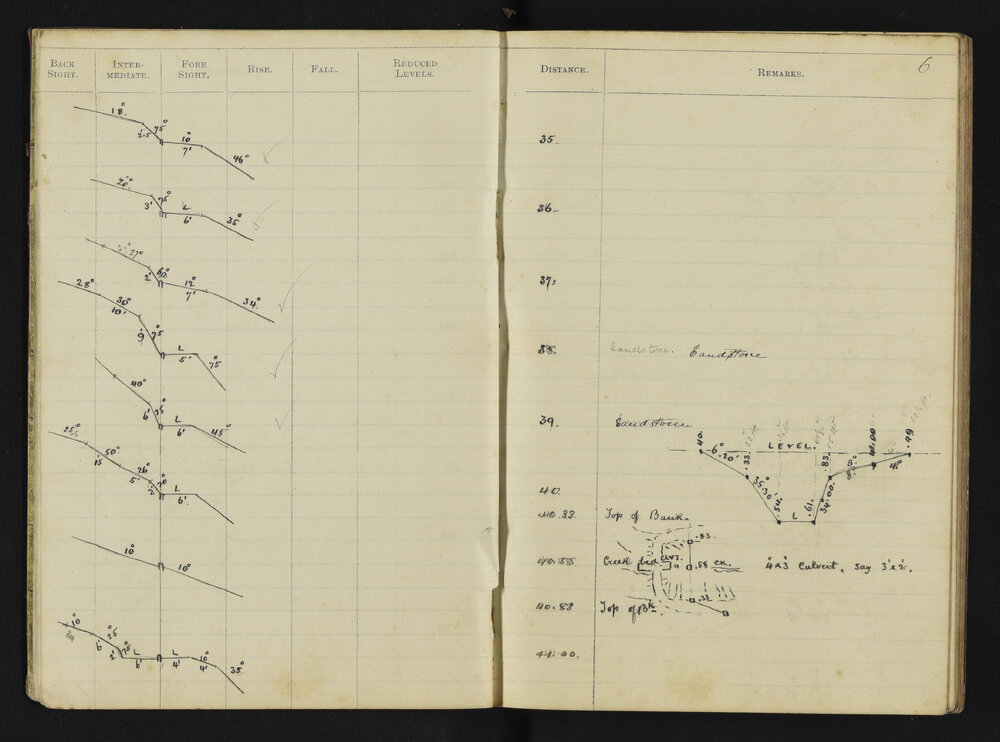 BACK SIGHT. INTER- MEDIATE. FORE SIGHT. RISE. FALL. REDUCED LEVELS.
18° 75° 10° 46°
2.5 7'
20° 75° L 35°
3' 6'
27° 60° 12° 34°
2' 7'
28° 30° 75 L 75°
10' 9' 5'
40° 75° L 45°
6' 6'
25° 50° 26° 70° L
15 5' 2' 6'
10° 10°
10° 26° 75° L L 10° 35°
6' 2' 6' 4' 4'
DISTANCE. REMARKS. 6
35.
36.
37.
38. Sandstone. Sandstone
39. Sandstone
40. LEVEL. .83. 41.00 .49
6° 20' .33. 8° 4°
35° 30' 34.00.
.54. L .61.
40.
40.82. Top of Bank.
.83.
40.88 Creek bed .88 CK. 4'x3' Culvert, say 3'x2'.
40.82 Top of Bk .33
41.00.